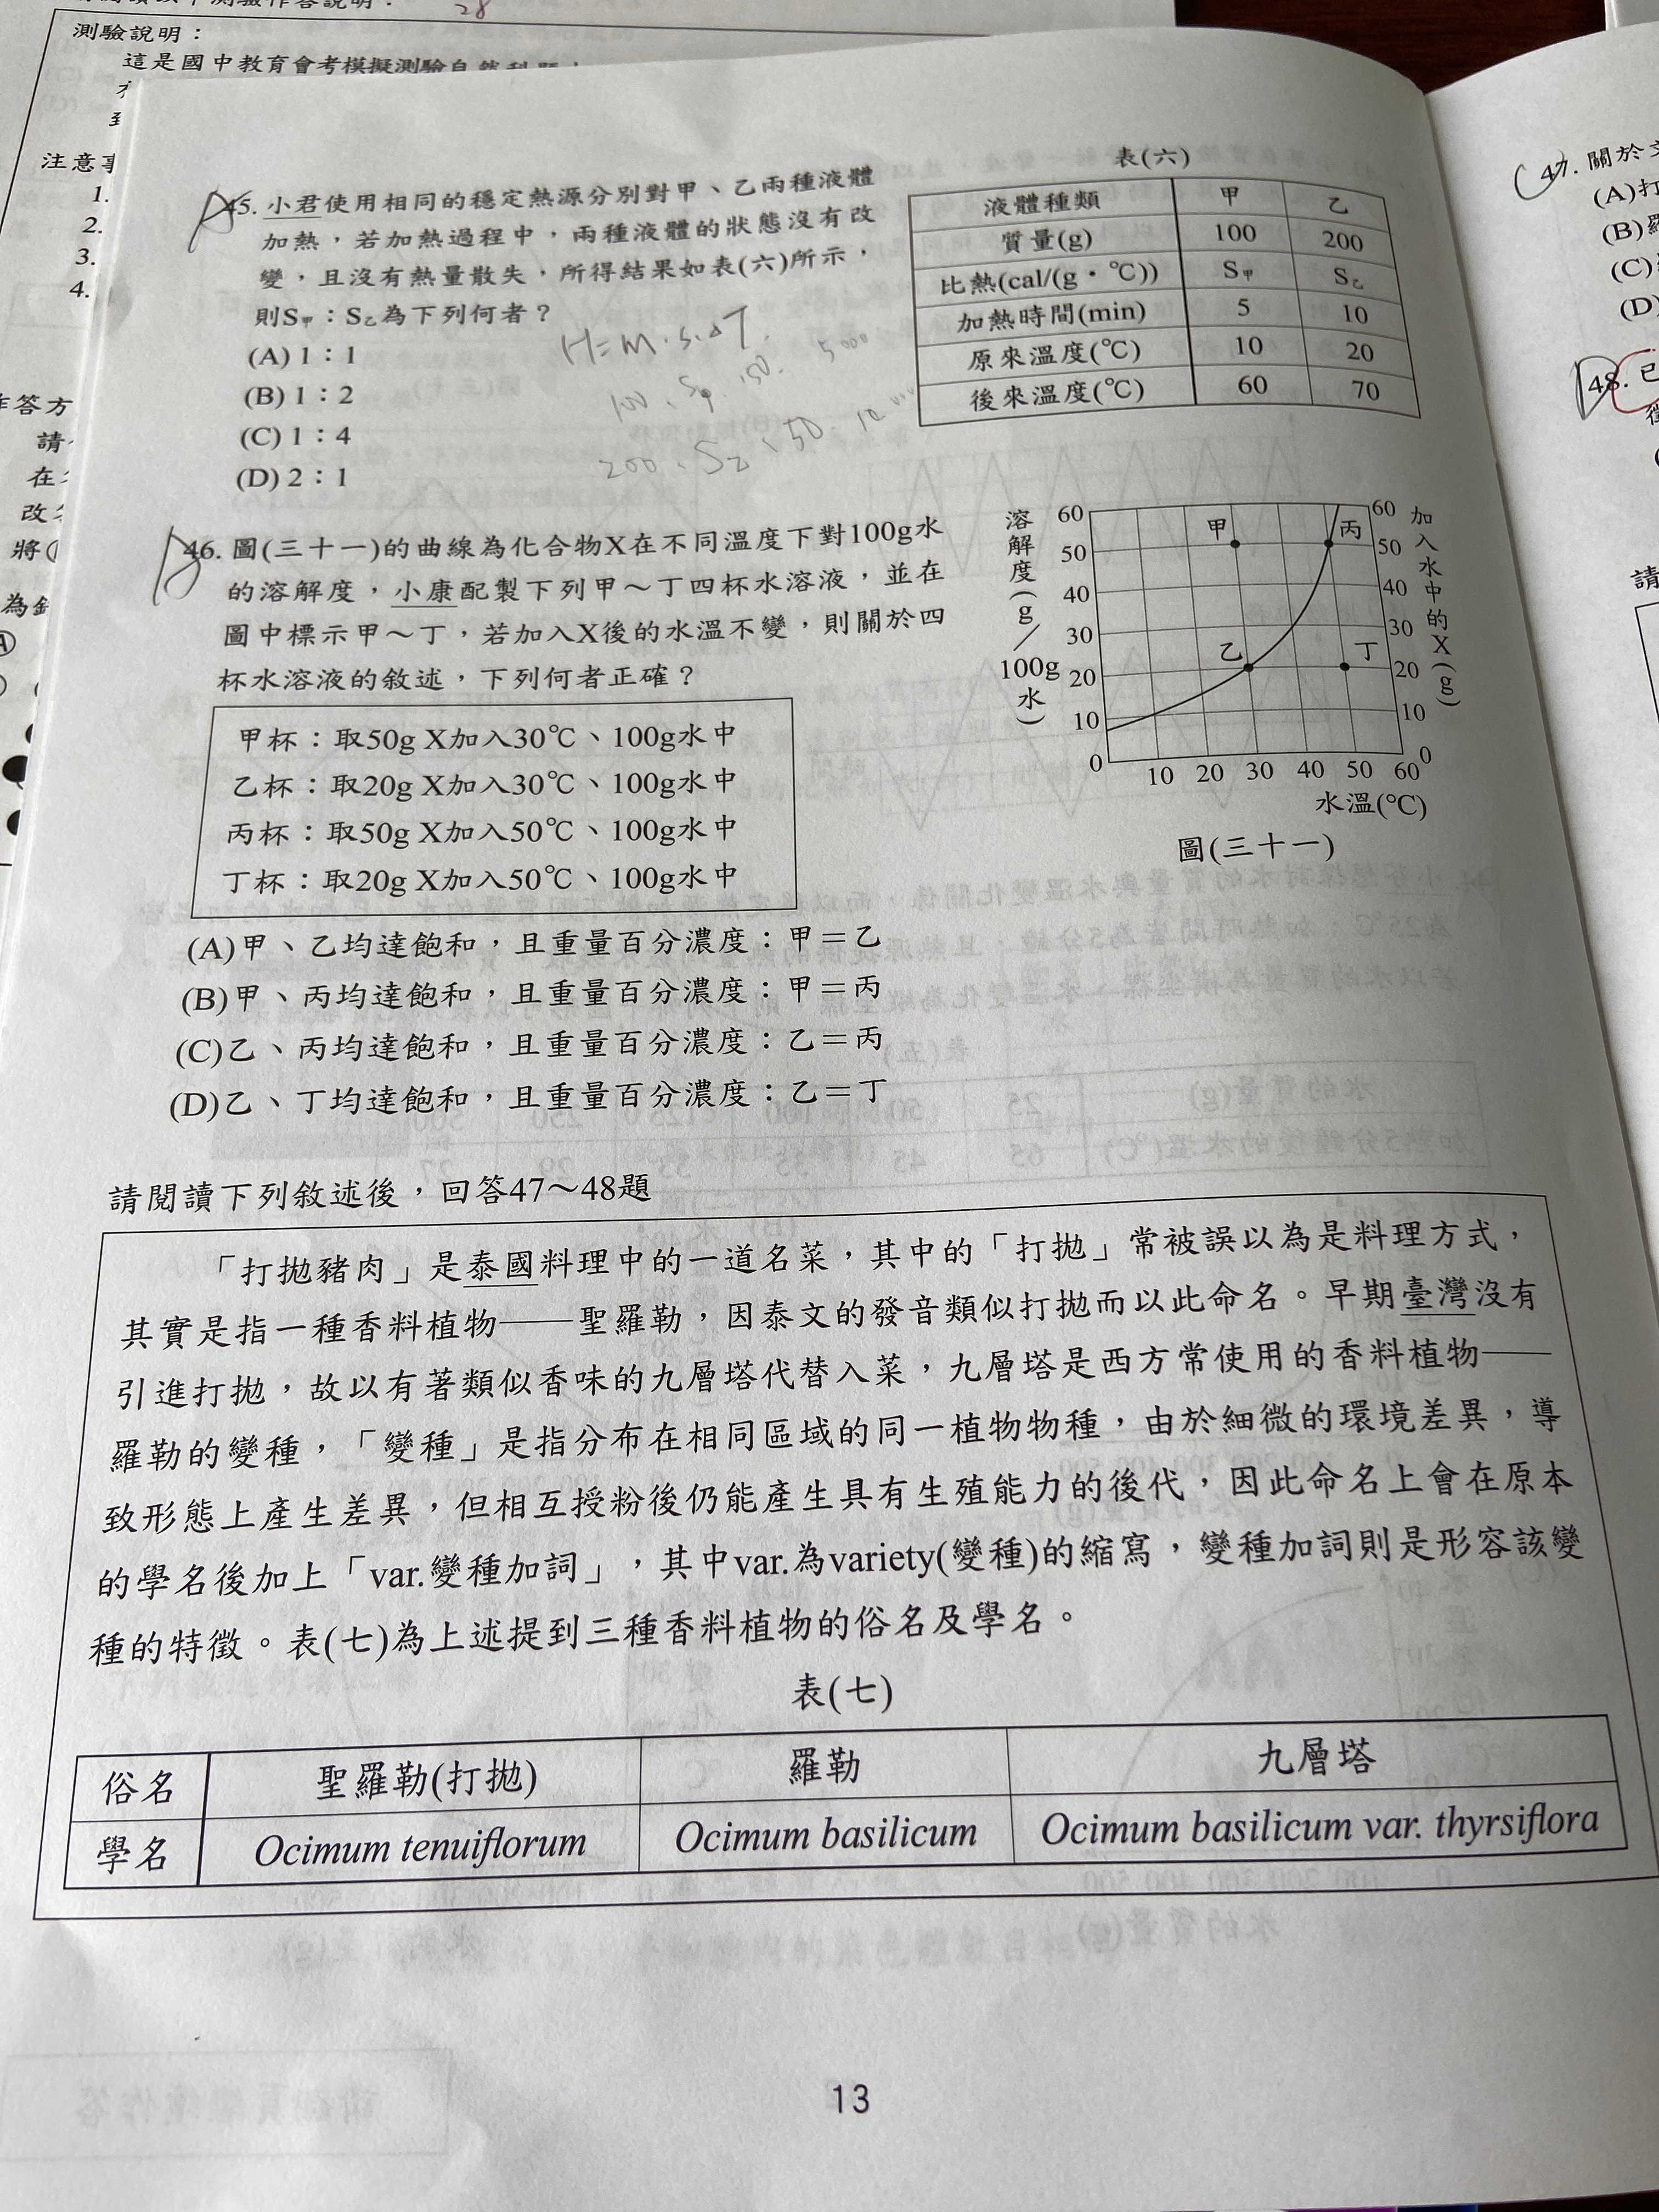 測驗說明：
這是國中教育會考模擬測驗自然科題
注意事
1.
2.
3.
4.
28
作答方
請
在
改
將
為鉛
45. 小君使用相同的穩定熱源分別對甲、乙兩種液體
加熱，若加熱過程中，兩種液體的狀態沒有改
變，且沒有熱量散失，所得結果如表(六)所示，
則S甲：S乙為下列何者？
(A) 1：1
(B) 1：2
(C) 1：4
(D) 2：1
H=M·S·ΔT
表(六)
液體種類 甲 乙
質量(g) 100 200
比熱(cal/(g·℃)) S甲 S乙
加熱時間(min) 5 10
原來溫度(℃) 10 20
後來溫度(℃) 60 70
46. 圖(三十一)的曲線為化合物X在不同溫度下對100g水
的溶解度，小康配製下列甲～丁四杯水溶液，並在
圖中標示甲～丁，若加入X後的水溫不變，則關於四
杯水溶液的敘述，下列何者正確？
甲杯：取50g X加入30℃、100g水中
乙杯：取20g X加入30℃、100g水中
丙杯：取50g X加入50℃、100g水中
丁杯：取20g X加入50℃、100g水中
(A)甲、乙均達飽和，且重量百分濃度：甲＝乙
(B)甲、丙均達飽和，且重量百分濃度：甲＝丙
(C)乙、丙均達飽和，且重量百分濃度：乙＝丙
(D)乙、丁均達飽和，且重量百分濃度：乙＝丁
溶解度(g／100g水)
60
50
40
30
20
10
0
甲
乙
丙
丁
10 20 30 40 50 60
水溫(℃)
60
50
40
30
20
10
0
加入水中的X(g)
圖(三十一)
請閱讀下列敘述後，回答47～48題
「打拋豬肉」是泰國料理中的一道名菜，其中的「打拋」常被誤以為是料理方式，
其實是指一種香料植物——聖羅勒，因泰文的發音類似打拋而以此命名。早期臺灣沒有
引進打拋，故以有著類似香味的九層塔代替入菜，九層塔是西方常使用的香料植物——
羅勒的變種，「變種」是指分布在相同區域的同一植物物種，由於細微的環境差異，導
致形態上產生差異，但相互授粉後仍能產生具有生殖能力的後代，因此命名上會在原本
的學名後加上「var.變種加詞」，其中var.為variety(變種)的縮寫，變種加詞則是形容該變
種的特徵。表(七)為上述提到三種香料植物的俗名及學名。
表(七)
俗名 聖羅勒(打拋) 羅勒 九層塔
學名 Ocimum tenuiflorum Ocimum basilicum Ocimum basilicum var. thyrsiflora
13
47. 關於
(A)打
(B)羅
(C)
(D)
48. 已
請